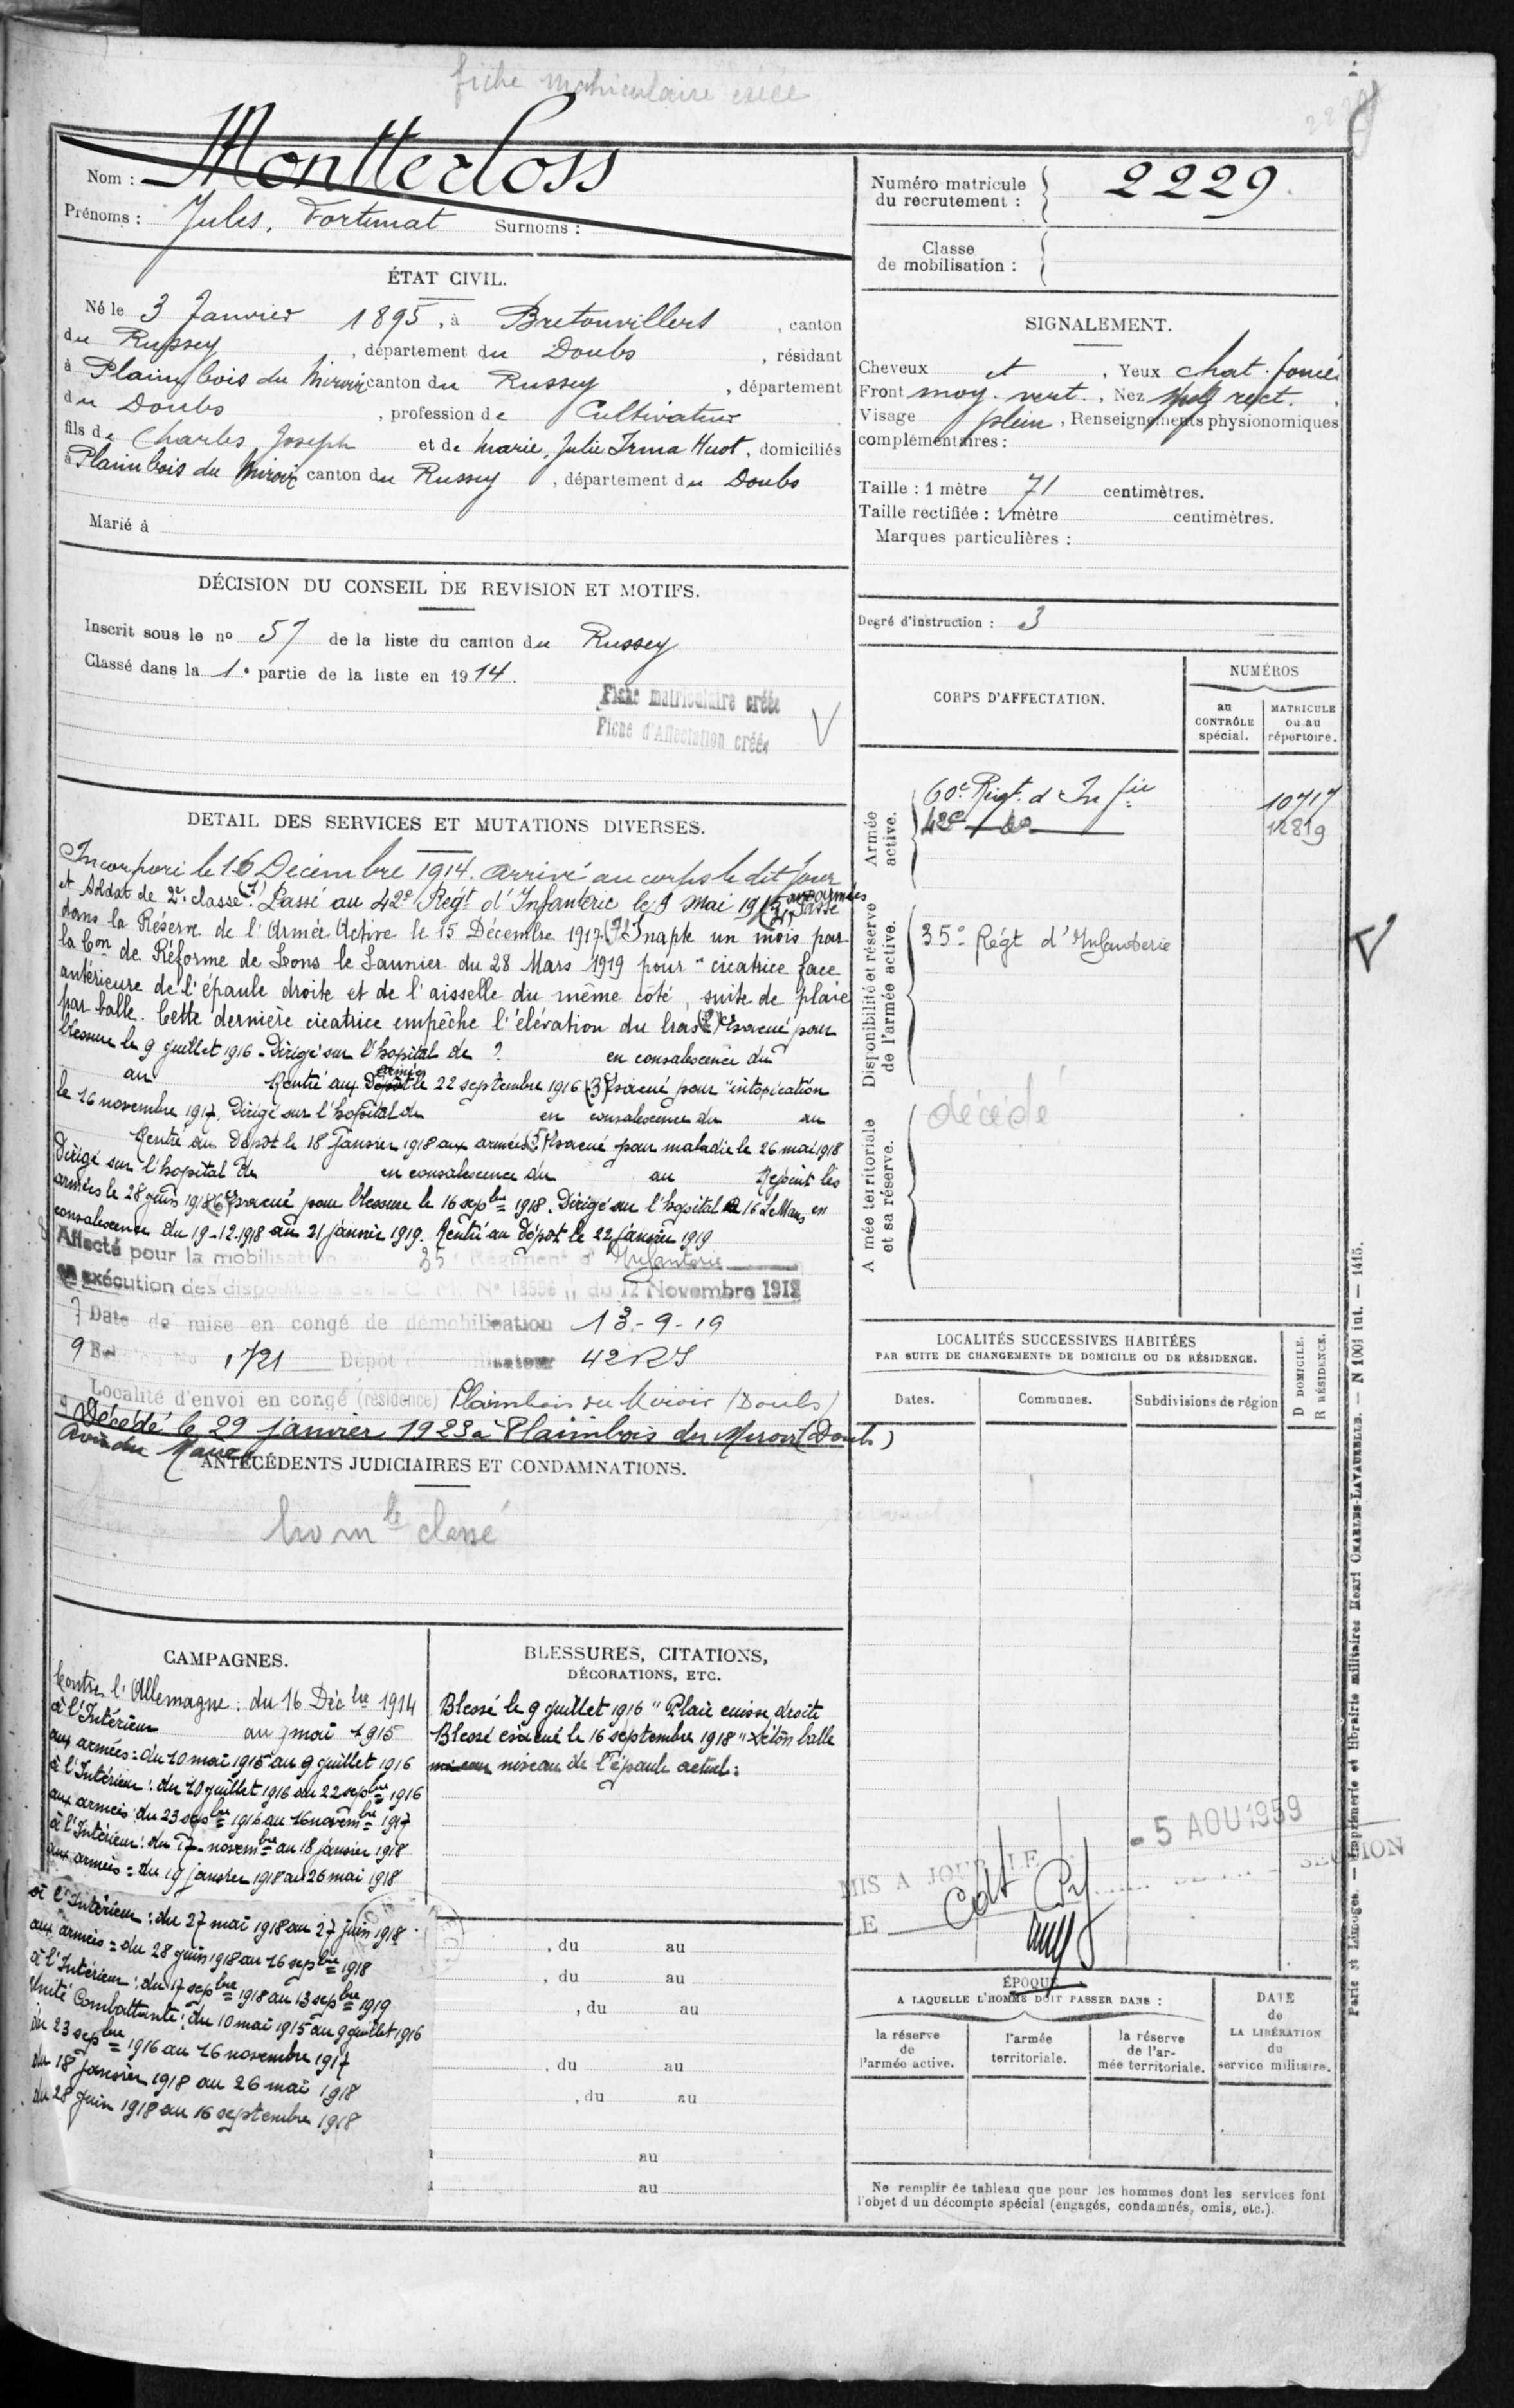 fiche matriculaire créée
Nom : Montterloss
Prénoms : Jules, Fortunat Surnoms :
ÉTAT CIVIL.
Né le 3 Janvier 1895, à Bretonvillers, canton
du Russey, département du Doubs, résidant
à Plaimbois du Miroir canton du Russey, département
du Doubs, profession de Cultivateur
fils de Charles, Joseph et de Marie, Julie Irma Huot, domiciliés
à Plaimbois du Miroir canton du Russey, département du Doubs
Marié à
DÉCISION DU CONSEIL DE REVISION ET MOTIFS.
Inscrit sous le no 57 de la liste du canton du Russey
Classé dans la 1e partie de la liste en 1914.
Fiche matriculaire créée
Fiche d'Affectation créée
DETAIL DES SERVICES ET MUTATIONS DIVERSES.
Incorporé le 16 Décembre 1914. Arrivé au corps le dit jour
et Soldat de 2e classe (1) Passé au 42e Régt d'Infanterie le 9 Mai 1915 aux armées Passé
dans la Réserve de l'Armée Active le 15 Décembre 1917 Inapte un mois par
la Con de Réforme de Lons le Saunier du 28 Mars 1919 pour "cicatrice face
antérieure de l'épaule droite et de l'aisselle du même côté, suite de plaie
par balle. Cette dernière cicatrice empêche l'élévation du bras (2) Evacué pour
blessure le 9 juillet 1916 - Dirigé sur l'hopital de ? en convalescence du
au Rentré aux Dépôt armées le 22 septembre 1916 (3) Evacué pour "intoxication
le 16 novembre 1917. Dirigé sur l'hopital de en convalescence du au
Rentré au Dépôt le 18 Janvier 1918 aux armées (5) Evacué pour maladie le 26 mai 1918
Dirigé sur l'hopital de en convalescence du au Rejoint les
armées le 28 juin 1918 (6) Evacué pour blessure le 16 sepbre 1918. Dirigé sur l'hopital 16 Le Mans en
convalescence du 19-12-1918 au 21 janvier 1919. Rentré au Dépôt le 22 janvier 1919
Affecté pour la mobilisation 35e Régiment d'Infanterie
exécution des dispositions de la C. M. No 18596 du 12 Novembre 1912
7 Date de mise en congé de démobilisation 13-9-19
9 1721 Dépôt 42 RI
Localité d'envoi en congé (résidence) Plaimbois du Miroir (Doubs)
Décédé le 29 janvier 1923 à Plaimbois du Miroir (Doubs)
Avis du Maire
ANTÉCÉDENTS JUDICIAIRES ET CONDAMNATIONS.
classé
CAMPAGNES.
Contre l'Allemagne : du 16 Déc bre 1914
à l'Intérieur au 9 mai 1915
aux armées : du 10 mai 1915 au 9 juillet 1916
à l'Intérieur : du 10 juillet 1916 au 22 sepbre 1916
aux armées du 23 sepbre 1916 au 16 novembre 1917
à l'Intérieur : du 17 novembre au 18 janvier 1918
aux armées : du 19 janvier 1918 au 26 mai 1918
à l'Intérieur : du 27 mai 1918 au 27 juin 1918
aux armées : du 28 juin 1918 au 16 sepbre 1918
à l'Intérieur : du 17 sepbre 1918 au 13 sepbre 1919
Unité Combattante : du 10 mai 1915 au 9 juillet 1916
du 23 sepbre 1916 au 16 novembre 1917
du 18 janvier 1918 au 26 mai 1918
du 28 juin 1918 au 16 septembre 1918
BLESSURES, CITATIONS,
DÉCORATIONS, ETC.
Blessé le 9 juillet 1916 "Plaie cuisse droite
Blessé évacué le 16 septembre 1918 "Séton balle
niveau de l'épaule
, du au
, du au
, du au
, du au
, du au
au
au
Numéro matricule
du recrutement : 2229
Classe
de mobilisation :
SIGNALEMENT.
Cheveux et, Yeux chat. foncé
Front moy. vert., Nez rect.
Visage plein, Renseignements physionomiques
complémentaires :
Taille : 1 mètre 71 centimètres.
Taille rectifiée : 1 mètre centimètres.
Marques particulières :
Degré d'instruction : 3
CORPS D'AFFECTATION.
NUMÉROS
au
CONTRÔLE
spécial.
MATRICULE
ou au
répertoire.
Armée
active.
60e Régt. d'Infie 10717
42e do 12819
Disponibilité et réserve
de l'armée active.
35e Régt d'Infanterie
Armée territoriale
et sa réserve.
décédé
LOCALITÉS SUCCESSIVES HABITÉES
PAR SUITE DE CHANGEMENTS DE DOMICILE OU DE RÉSIDENCE.
D DOMICILE.
R RÉSIDENCE.
Dates.
Communes.
Subdivisions de région
- 5 AOU 1959
MIS A JOUR LE
LE
SECTION
ÉPOQUE
A LAQUELLE L'HOMME DOIT PASSER DANS :
la réserve
de
l'armée active.
l'armée
territoriale.
la réserve
de l'ar-
mée territoriale.
DATE
de
LA LIBÉRATION
du
service militaire.
Ne remplir ce tableau que pour les hommes dont les services font
l'objet d'un décompte spécial (engagés, condamnés, omis, etc.).
Paris et Limoges. — Imprimerie et librairie militaires Henri CHARLES-LAVAUZELLE. — N 1001 int. — 1415.